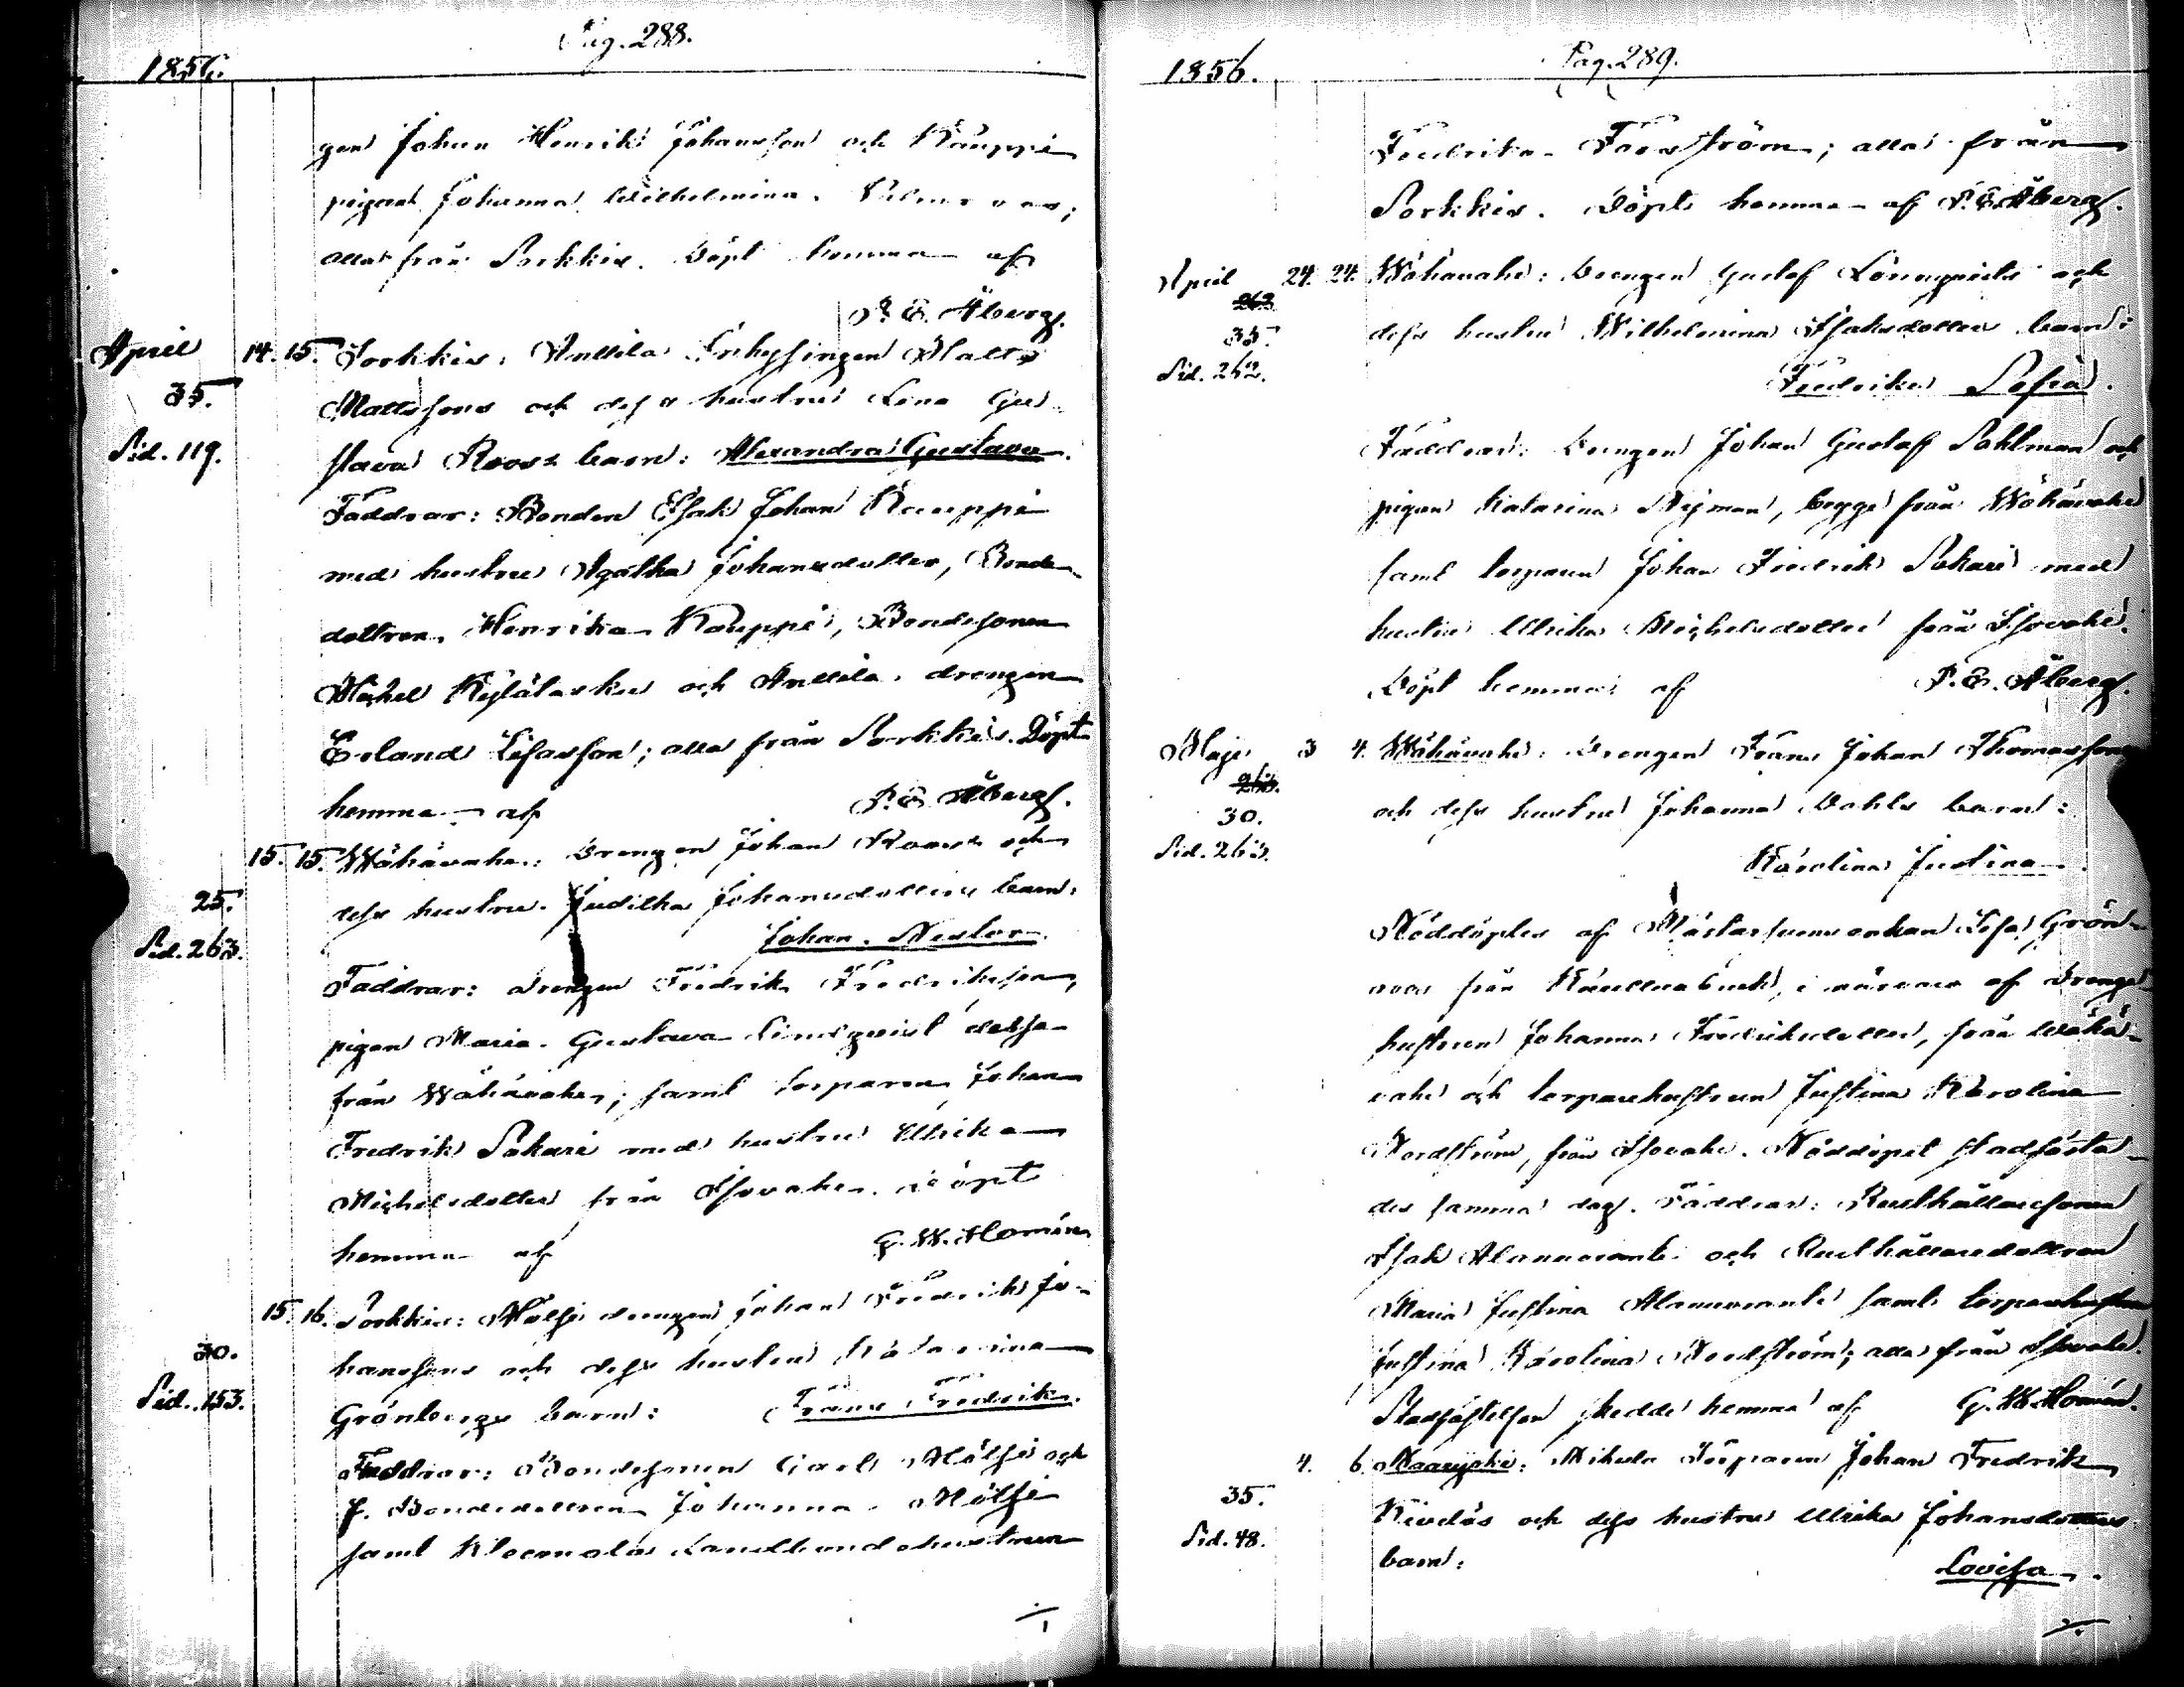 Pag. 288.
1856.
gen Johan Henrik Johansson och Kauppi
pigan Johanna Wilhelmina
alla från Sorkkis. Döpt hemma af
P. E. Åberg.
April 14. 15. Sorkkis: Anttila Inhysingen Matts
35. Mattssons och dess hustru Lena Gu-
Sid. 119. stava Roos's barn: Alexandra Gustava.
Faddrar: Bonden Isak Johan Kauppi
med hustru Agatha Johansdotter, Bonde-
dottren Henrika Kauppi, Bondesonen
Michel Kylälasku och Anttila drengen
Erland Esaiasson; alla från Sorkkis. Döpt
hemma af P. E. Åberg.
15. 15. Wähävahe: Drengen Johan Roos's och
25. dess hustru Juditha Johansdotters barn:
Sid. 263. Johan Nestor.
Faddrar: drengen Fredrik Fredriksson,
pigan Maria Gustava Lindqvist
från Wähävahe; samt torparen Johan
Fredrik Sakari med hustru Ulrika
Michelsdotter från Isovahe. Döpt
hemma af G. W. Homén
15. 16. Sorkkis: Mälsi drengen Johan Fredrik Jo-
30. hanssons och dess hustru Katarina
Sid. 153. Grönbergs barn: Frans Fredrik.
Faddrar: Bondesonen Carl Mälsi och
Bondedottren Johanna Mälsi
samt Landbondehustrun
Pag. 289.
1856.
Fredrika Forsström; alla från
Sorkkis. Döpt hemma af P. E. Åberg.
April 24. 24. Wähävahe: Drengen Gustaf Lönnqvists och
262
35. dess hustru Wilhelmina Isaksdotters barn:
Sid. 262. Fredrika Sofia.
Faddrar: Drengen Johan Gustaf Sahlman och
pigan Katarina Nyman, begge från Wähävahe
samt torparen Johan Fredrik Sakari med
hustru Ulrika Michelsdotter från Isovahe.
Döpt hemma af P. E. Åberg.
Maji 3 4. Wähävahe: Drengen Frans Johan Thomassons
263.
30. och dess hustru Johanna Dahls barn:
Sid. 263. Karolina Justina.
Nöddöptes af Lisa Grön-
roos från i närvaro af drenge-
hustrun Johanna Fredriksdotter, från Wähä-
vahe och torparehustrun Justina Karolina
Nordström, från Isovahe. Nöddopet stadfästa-
des samma dag. Faddrar: Rusthållaresonen
Isak Alanuvanti och Rusthållaredottren
Maria Justina Alanuvanti samt torparehustrun
Justina Karolina Nordström; alla från Isovahe.
Stadfästelsen skedde hemma af G. W. Homén.
4. 6. Mikola Torparen Johan Fredrik
35. och dess hustru Ulrika Johansdotters
Sid. 48. barn: Lovisa.